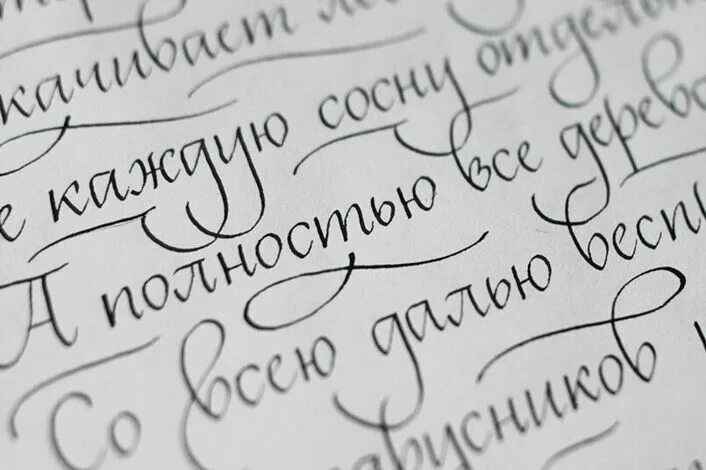 качивает
е каждую сосну отдель
А полностью все дерев
Со всею далью бесп
арусников